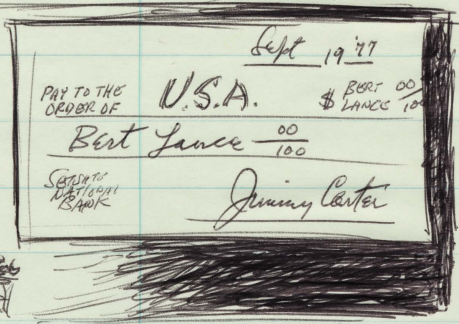 Sept 19'77
PAY TO THE ORDER OF U.S.A. $ BERT LANCE 00/100
Bert Lance 00/100
NATIONAL BANK
Jimmy Carter